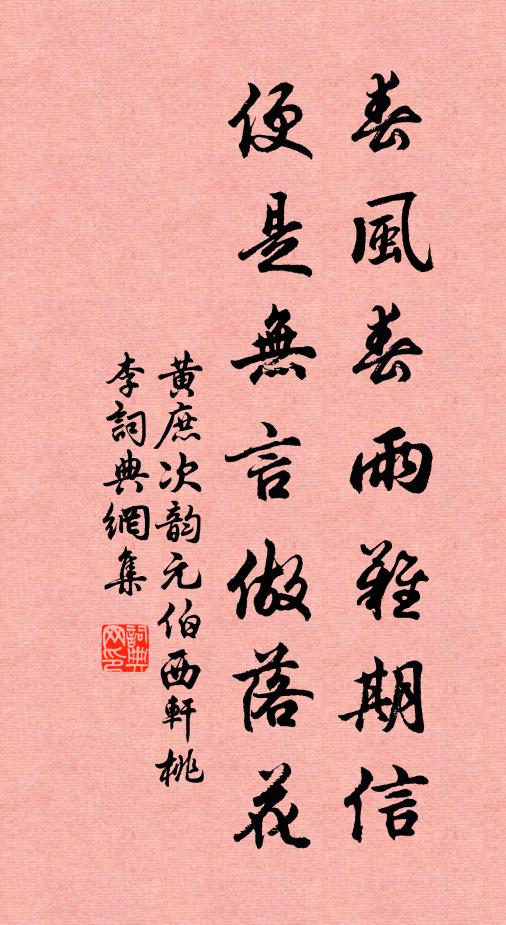 春風春雨難期信
便是無言做落花
黃庶次韵元伯西軒桃
李詞典網集
詞典网印